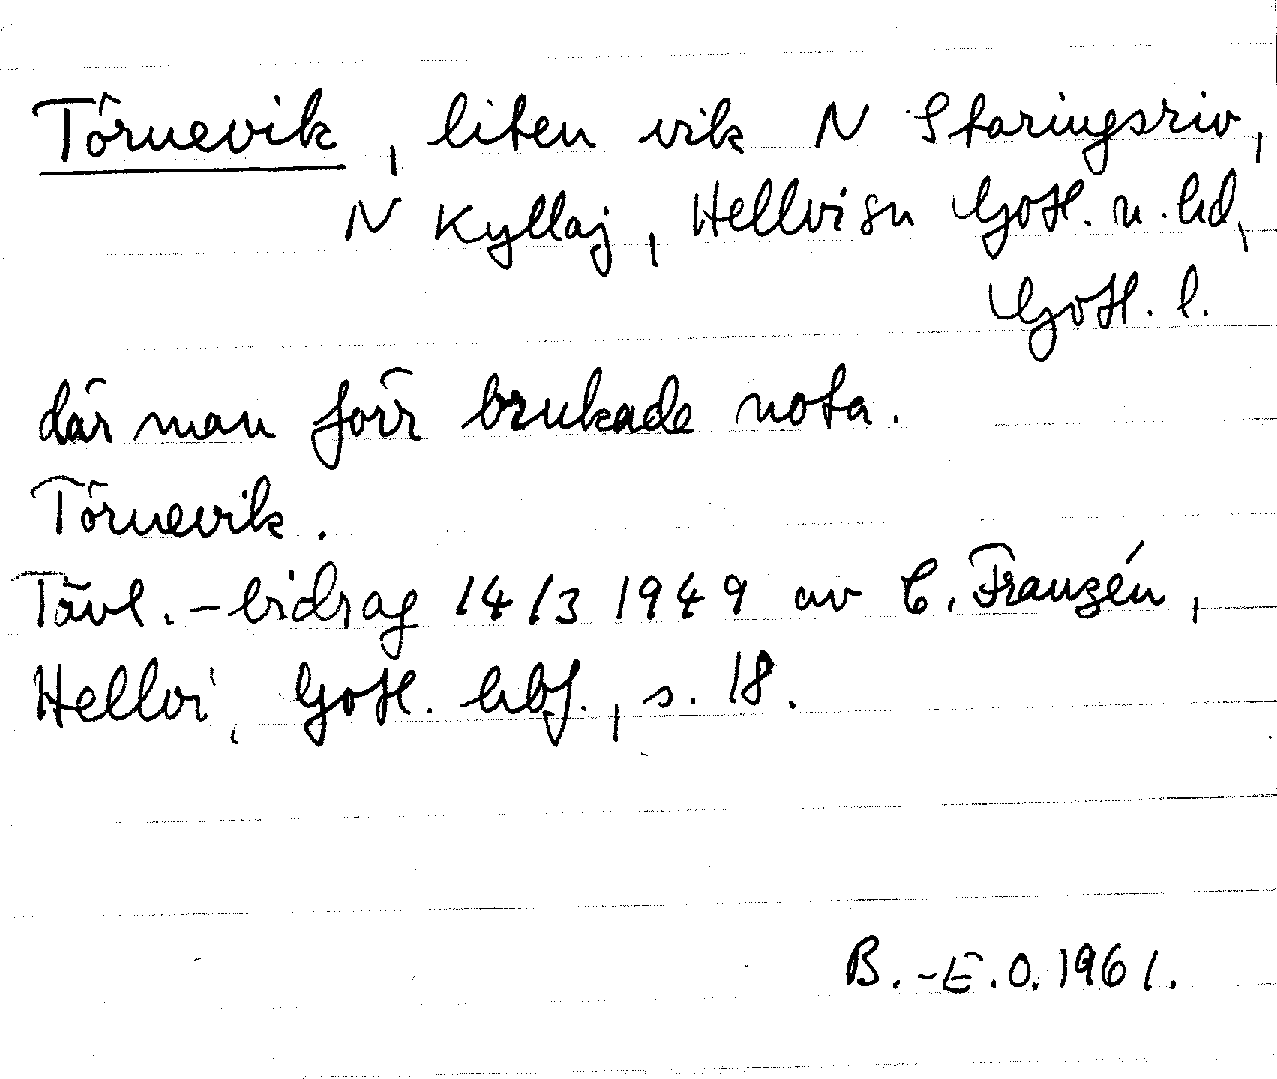 Törnevik, liten vik N Staringsriv,
N Kyllaj, Hellvi sn Gotl. n. hd,
Gotl. l.
där man förr brukade nota.
Törnevik.
Tävl.-bidrag 14/3 1949 av C. Franzén,
Hellvi, Gotl. hbf., s. 18.
B.-E.O. 1961.